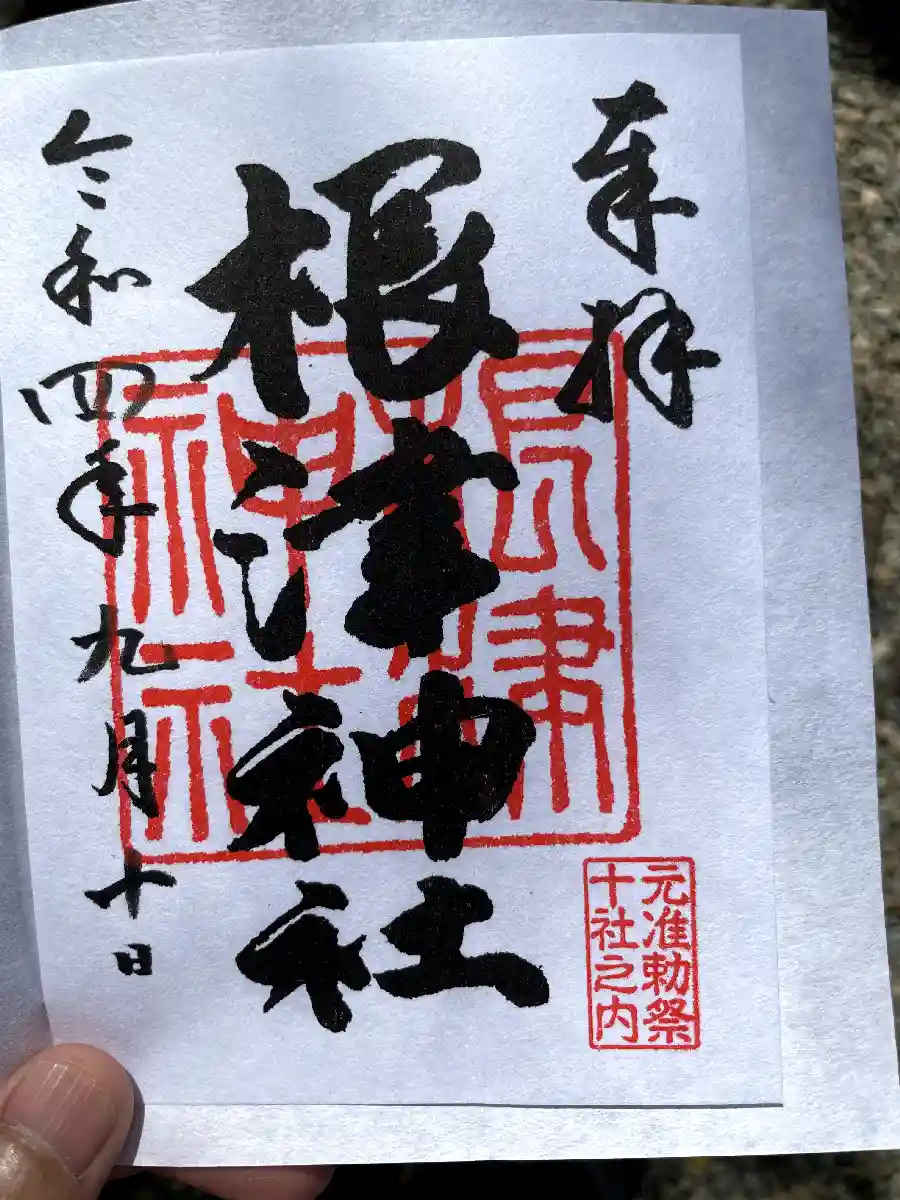 奉拝
根津神社
令和四年九月十日
元准勅祭
十社之内